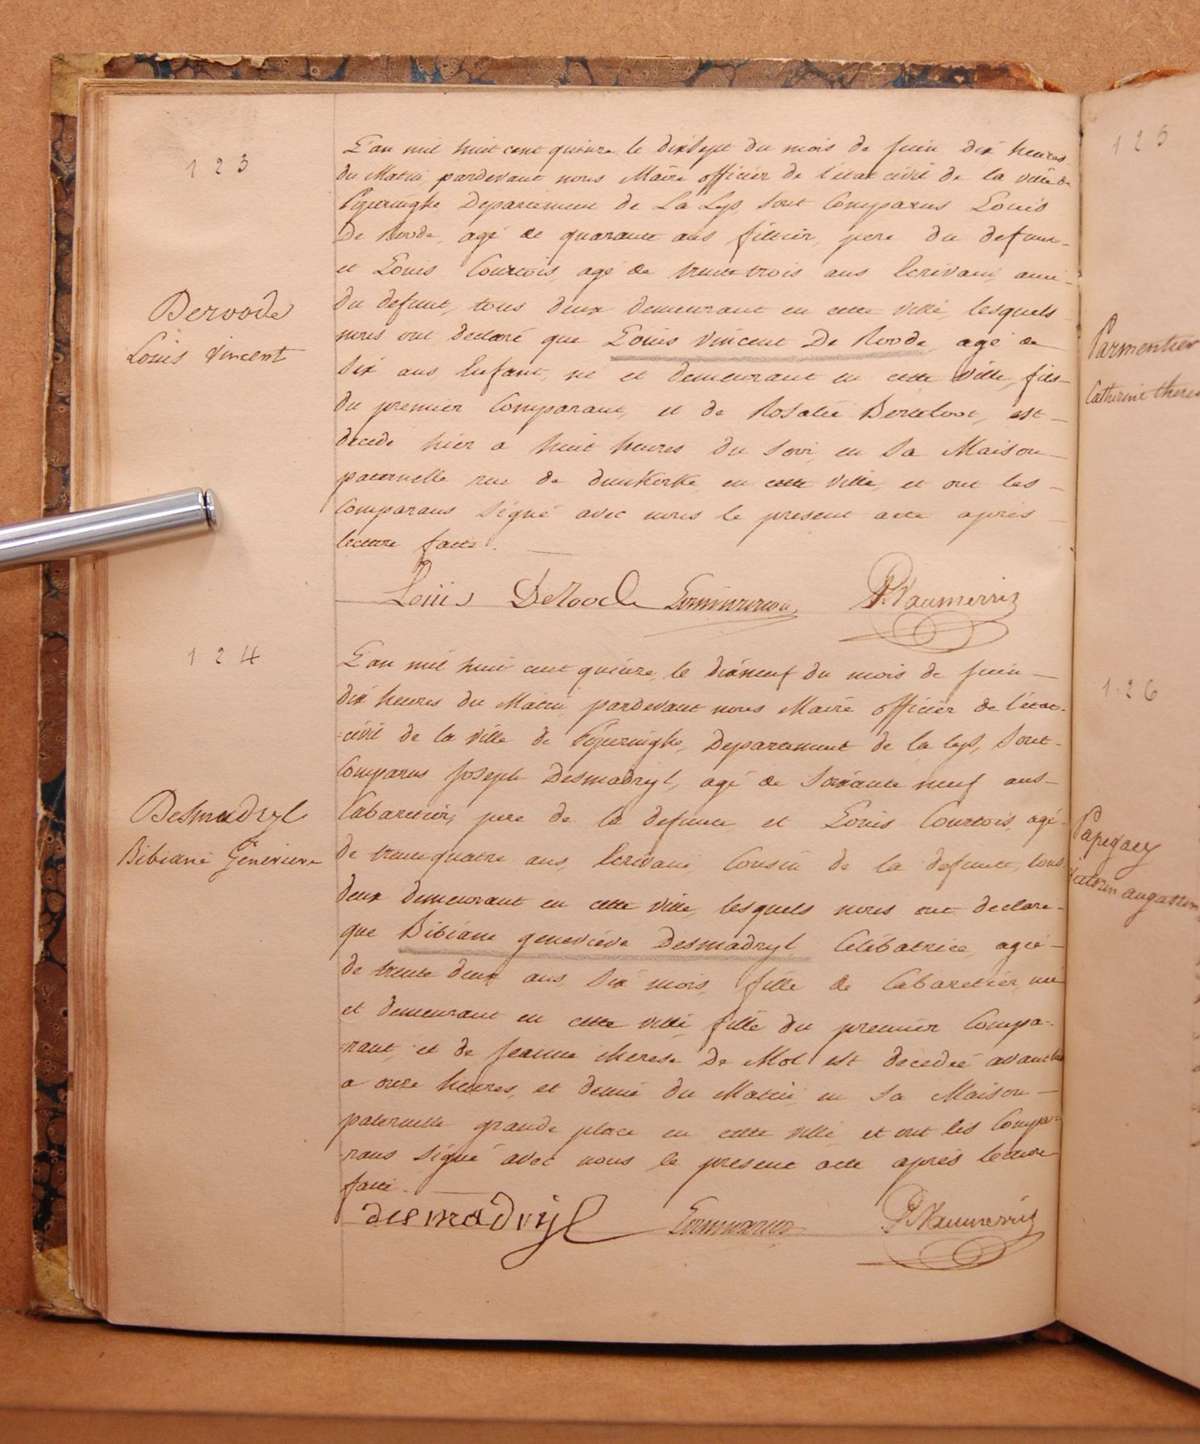 123
Deroode
Louis Vincent
L'an mil huit cent quinze le dixsept du mois de juin dix heures
du Matin pardevant nous Maire officier de l'état civil de la ville de
Poperinghe Departement de La Lys, sont Comparus Louis
De Roode, agé de quarante ans filtier, pere du defunt
et Louis Courtois, agé de trente trois ans Ecrivain, ami
du defunt, tous deux demeurant en cette ville, lesquels
nous ont declaré que Louis Vincent De Roode, agé de
Six ans Enfant, né et demeurant en cette ville, fils
du premier Comparant, et de Rosalie Berteloot, est
decedé hier a huit heures du soir, en sa Maison
paternelle rue de dunkerke, en cette ville, et ont les
Comparans signé avec nous le present acte apres
lecture faite.
Louis DeRoode P. Vanmerris
124
Desmadryl
Bibiane Genevieve
L'an mil huit cent quinze, le dixneuf du mois de juin
dix heures du Matin, pardevant nous Maire officier de l'état
civil de la ville de Poperinghe, Departement de la lys, sont
Comparus Joseph Desmadryl, agé de soixante neuf ans
Cabaretier, pere de la defunte et Louis Courtois, agé
de trente quatre ans, Ecrivain, Cousin de la defunte, tous
deux demeurant en cette ville, lesquels nous ont declaré
que Bibiane geneviève Desmadryl Célébatrice, agée
de trente deux ans, six mois, fille de Cabaretier, née
et demeurant en cette ville, fille du premier Compa-
rant, et de Jeanne therese De Mol est decedée
a onze heures, et demie du Matin, en sa Maison
paternelle grande place en cette ville et ont les Compa-
rans signé avec nous le present acte aprés lecture
faite.
desmadryl P. Vanmerris
125
Parmentier
Catherine there
126
Papegaey